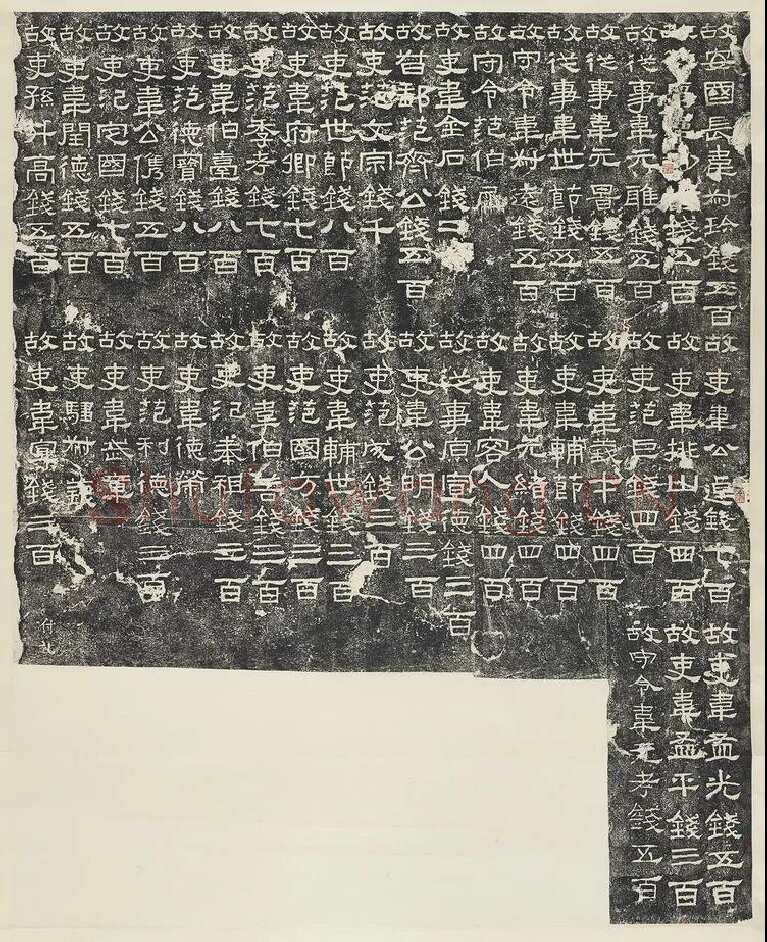 故安國長韋叔珍錢五百
故從事韋錢五百
故從事韋元雅錢五百
故從事韋元景錢五百
故從事韋世節錢五百
故守令韋叔遠錢五百
故守令范伯犀
故吏韋金石錢二
故督郵范齊公錢五百
故吏范文宗錢千
故吏范世節錢八百
故吏韋府卿錢七百
故吏范季考錢七百
故吏韋伯臺錢八百
故吏范德寶錢八百
故吏韋公儁錢五百
故吏氾定國錢七百
故吏韋閏德錢五百
故吏孫升高錢五百
故吏韋公逴錢七百
故吏韋排山錢四百
故吏范巨錢四百
故吏韋義才錢四百
故吏韋輔節錢四百
故吏韋元緒錢四百
故吏韋容人錢四百
故從事原宣德錢三百
故吏韋公明錢三百
故吏范成錢三百
故吏韋輔世錢三百
故吏范國方錢三百
故吏韋伯善錢三百
故吏氾奉祖錢三百
故吏韋德榮
故吏范利德錢三百
故吏韋武章
故吏騶叔義
故吏韋宣錢三百
故吏韋孟光錢五百
故吏韋孟平錢三百
故守令韋元考錢五百
Shufawang.CN